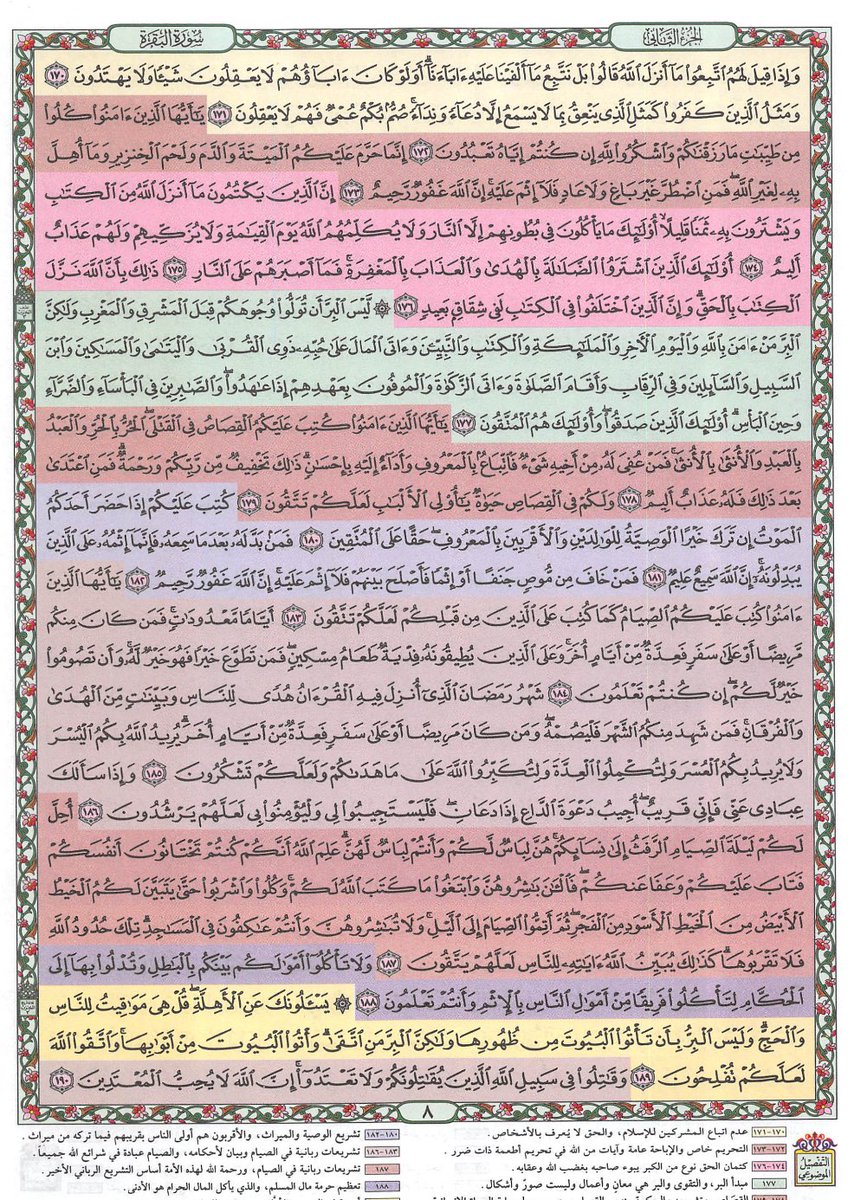 الجزء الثاني
سورة البقرة
وَإِذَا قِيلَ لَهُمُ ٱتَّبِعُوا۟ مَآ أَنزَلَ ٱللَّهُ قَالُوا۟ بَلْ نَتَّبِعُ مَآ أَلْفَيْنَا عَلَيْهِ ءَابَآءَنَآ ۗ أَوَلَوْ كَانَ ءَابَآؤُهُمْ لَا يَعْقِلُونَ شَيْـًٔا وَلَا يَهْتَدُونَ ١٧٠
وَمَثَلُ ٱلَّذِينَ كَفَرُوا۟ كَمَثَلِ ٱلَّذِى يَنْعِقُ بِمَا لَا يَسْمَعُ إِلَّا دُعَآءً وَنِدَآءً ۚ صُمٌّۢ بُكْمٌ عُمْىٌ فَهُمْ لَا يَعْقِلُونَ ١٧١ يَـٰٓأَيُّهَا ٱلَّذِينَ ءَامَنُوا۟ كُلُوا۟
مِن طَيِّبَـٰتِ مَا رَزَقْنَـٰكُمْ وَٱشْكُرُوا۟ لِلَّهِ إِن كُنتُمْ إِيَّاهُ تَعْبُدُونَ ١٧٢ إِنَّمَا حَرَّمَ عَلَيْكُمُ ٱلْمَيْتَةَ وَٱلدَّمَ وَلَحْمَ ٱلْخِنزِيرِ وَمَآ أُهِلَّ
بِهِۦ لِغَيْرِ ٱللَّهِ ۖ فَمَنِ ٱضْطُرَّ غَيْرَ بَاغٍ وَلَا عَادٍ فَلَآ إِثْمَ عَلَيْهِ ۚ إِنَّ ٱللَّهَ غَفُورٌ رَّحِيمٌ ١٧٣ إِنَّ ٱلَّذِينَ يَكْتُمُونَ مَآ أَنزَلَ ٱللَّهُ مِنَ ٱلْكِتَـٰبِ
وَيَشْتَرُونَ بِهِۦ ثَمَنًا قَلِيلًا ۙ أُو۟لَـٰٓئِكَ مَا يَأْكُلُونَ فِى بُطُونِهِمْ إِلَّا ٱلنَّارَ وَلَا يُكَلِّمُهُمُ ٱللَّهُ يَوْمَ ٱلْقِيَـٰمَةِ وَلَا يُزَكِّيهِمْ وَلَهُمْ عَذَابٌ
أَلِيمٌ ١٧٤ أُو۟لَـٰٓئِكَ ٱلَّذِينَ ٱشْتَرَوُا۟ ٱلضَّلَـٰلَةَ بِٱلْهُدَىٰ وَٱلْعَذَابَ بِٱلْمَغْفِرَةِ ۚ فَمَآ أَصْبَرَهُمْ عَلَى ٱلنَّارِ ١٧٥ ذَٰلِكَ بِأَنَّ ٱللَّهَ نَزَّلَ
ٱلْكِتَـٰبَ بِٱلْحَقِّ ۗ وَإِنَّ ٱلَّذِينَ ٱخْتَلَفُوا۟ فِى ٱلْكِتَـٰبِ لَفِى شِقَاقٍۭ بَعِيدٍ ١٧٦ ۞ لَّيْسَ ٱلْبِرَّ أَن تُوَلُّوا۟ وُجُوهَكُمْ قِبَلَ ٱلْمَشْرِقِ وَٱلْمَغْرِبِ وَلَـٰكِنَّ
ٱلْبِرَّ مَنْ ءَامَنَ بِٱللَّهِ وَٱلْيَوْمِ ٱلْـَٔاخِرِ وَٱلْمَلَـٰٓئِكَةِ وَٱلْكِتَـٰبِ وَٱلنَّبِيِّـۧنَ وَءَاتَى ٱلْمَالَ عَلَىٰ حُبِّهِۦ ذَوِى ٱلْقُرْبَىٰ وَٱلْيَتَـٰمَىٰ وَٱلْمَسَـٰكِينَ وَٱبْنَ
ٱلسَّبِيلِ وَٱلسَّآئِلِينَ وَفِى ٱلرِّقَابِ وَأَقَامَ ٱلصَّلَوٰةَ وَءَاتَى ٱلزَّكَوٰةَ وَٱلْمُوفُونَ بِعَهْدِهِمْ إِذَا عَـٰهَدُوا۟ ۖ وَٱلصَّـٰبِرِينَ فِى ٱلْبَأْسَآءِ وَٱلضَّرَّآءِ
وَحِينَ ٱلْبَأْسِ ۗ أُو۟لَـٰٓئِكَ ٱلَّذِينَ صَدَقُوا۟ ۖ وَأُو۟لَـٰٓئِكَ هُمُ ٱلْمُتَّقُونَ ١٧٧ يَـٰٓأَيُّهَا ٱلَّذِينَ ءَامَنُوا۟ كُتِبَ عَلَيْكُمُ ٱلْقِصَاصُ فِى ٱلْقَتْلَى ۖ ٱلْحُرُّ بِٱلْحُرِّ وَٱلْعَبْدُ
بِٱلْعَبْدِ وَٱلْأُنثَىٰ بِٱلْأُنثَىٰ ۚ فَمَنْ عُفِىَ لَهُۥ مِنْ أَخِيهِ شَىْءٌ فَٱتِّبَاعٌۢ بِٱلْمَعْرُوفِ وَأَدَآءٌ إِلَيْهِ بِإِحْسَـٰنٍ ۗ ذَٰلِكَ تَخْفِيفٌ مِّن رَّبِّكُمْ وَرَحْمَةٌ ۗ فَمَنِ ٱعْتَدَىٰ
بَعْدَ ذَٰلِكَ فَلَهُۥ عَذَابٌ أَلِيمٌ ١٧٨ وَلَكُمْ فِى ٱلْقِصَاصِ حَيَوٰةٌ يَـٰٓأُو۟لِى ٱلْأَلْبَـٰبِ لَعَلَّكُمْ تَتَّقُونَ ١٧٩ كُتِبَ عَلَيْكُمْ إِذَا حَضَرَ أَحَدَكُمُ
ٱلْمَوْتُ إِن تَرَكَ خَيْرًا ٱلْوَصِيَّةُ لِلْوَٰلِدَيْنِ وَٱلْأَقْرَبِينَ بِٱلْمَعْرُوفِ ۖ حَقًّا عَلَى ٱلْمُتَّقِينَ ١٨٠ فَمَنۢ بَدَّلَهُۥ بَعْدَمَا سَمِعَهُۥ فَإِنَّمَآ إِثْمُهُۥ عَلَى ٱلَّذِينَ
يُبَدِّلُونَهُۥٓ ۚ إِنَّ ٱللَّهَ سَمِيعٌ عَلِيمٌ ١٨١ فَمَنْ خَافَ مِن مُّوصٍ جَنَفًا أَوْ إِثْمًا فَأَصْلَحَ بَيْنَهُمْ فَلَآ إِثْمَ عَلَيْهِ ۚ إِنَّ ٱللَّهَ غَفُورٌ رَّحِيمٌ ١٨٢ يَـٰٓأَيُّهَا ٱلَّذِينَ
ءَامَنُوا۟ كُتِبَ عَلَيْكُمُ ٱلصِّيَامُ كَمَا كُتِبَ عَلَى ٱلَّذِينَ مِن قَبْلِكُمْ لَعَلَّكُمْ تَتَّقُونَ ١٨٣ أَيَّامًا مَّعْدُودَٰتٍ ۚ فَمَن كَانَ مِنكُم
مَّرِيضًا أَوْ عَلَىٰ سَفَرٍ فَعِدَّةٌ مِّنْ أَيَّامٍ أُخَرَ ۚ وَعَلَى ٱلَّذِينَ يُطِيقُونَهُۥ فِدْيَةٌ طَعَامُ مِسْكِينٍ ۖ فَمَن تَطَوَّعَ خَيْرًا فَهُوَ خَيْرٌ لَّهُۥ ۚ وَأَن تَصُومُوا۟
خَيْرٌ لَّكُمْ ۖ إِن كُنتُمْ تَعْلَمُونَ ١٨٤ شَهْرُ رَمَضَانَ ٱلَّذِىٓ أُنزِلَ فِيهِ ٱلْقُرْءَانُ هُدًى لِّلنَّاسِ وَبَيِّنَـٰتٍ مِّنَ ٱلْهُدَىٰ
وَٱلْفُرْقَانِ ۚ فَمَن شَهِدَ مِنكُمُ ٱلشَّهْرَ فَلْيَصُمْهُ ۖ وَمَن كَانَ مَرِيضًا أَوْ عَلَىٰ سَفَرٍ فَعِدَّةٌ مِّنْ أَيَّامٍ أُخَرَ ۗ يُرِيدُ ٱللَّهُ بِكُمُ ٱلْيُسْرَ
وَلَا يُرِيدُ بِكُمُ ٱلْعُسْرَ وَلِتُكْمِلُوا۟ ٱلْعِدَّةَ وَلِتُكَبِّرُوا۟ ٱللَّهَ عَلَىٰ مَا هَدَىٰكُمْ وَلَعَلَّكُمْ تَشْكُرُونَ ١٨٥ وَإِذَا سَأَلَكَ
عِبَادِى عَنِّى فَإِنِّى قَرِيبٌ ۖ أُجِيبُ دَعْوَةَ ٱلدَّاعِ إِذَا دَعَانِ ۖ فَلْيَسْتَجِيبُوا۟ لِى وَلْيُؤْمِنُوا۟ بِى لَعَلَّهُمْ يَرْشُدُونَ ١٨٦ أُحِلَّ
لَكُمْ لَيْلَةَ ٱلصِّيَامِ ٱلرَّفَثُ إِلَىٰ نِسَآئِكُمْ ۚ هُنَّ لِبَاسٌ لَّكُمْ وَأَنتُمْ لِبَاسٌ لَّهُنَّ ۗ عَلِمَ ٱللَّهُ أَنَّكُمْ كُنتُمْ تَخْتَانُونَ أَنفُسَكُمْ
فَتَابَ عَلَيْكُمْ وَعَفَا عَنكُمْ ۖ فَٱلْـَٔـٰنَ بَـٰشِرُوهُنَّ وَٱبْتَغُوا۟ مَا كَتَبَ ٱللَّهُ لَكُمْ ۚ وَكُلُوا۟ وَٱشْرَبُوا۟ حَتَّىٰ يَتَبَيَّنَ لَكُمُ ٱلْخَيْطُ
ٱلْأَبْيَضُ مِنَ ٱلْخَيْطِ ٱلْأَسْوَدِ مِنَ ٱلْفَجْرِ ۖ ثُمَّ أَتِمُّوا۟ ٱلصِّيَامَ إِلَى ٱلَّيْلِ ۚ وَلَا تُبَـٰشِرُوهُنَّ وَأَنتُمْ عَـٰكِفُونَ فِى ٱلْمَسَـٰجِدِ ۗ تِلْكَ حُدُودُ ٱللَّهِ
فَلَا تَقْرَبُوهَا ۗ كَذَٰلِكَ يُبَيِّنُ ٱللَّهُ ءَايَـٰتِهِۦ لِلنَّاسِ لَعَلَّهُمْ يَتَّقُونَ ١٨٧ وَلَا تَأْكُلُوٓا۟ أَمْوَٰلَكُم بَيْنَكُم بِٱلْبَـٰطِلِ وَتُدْلُوا۟ بِهَآ إِلَى
ٱلْحُكَّامِ لِتَأْكُلُوا۟ فَرِيقًا مِّنْ أَمْوَٰلِ ٱلنَّاسِ بِٱلْإِثْمِ وَأَنتُمْ تَعْلَمُونَ ١٨٨ ۞ يَسْـَٔلُونَكَ عَنِ ٱلْأَهِلَّةِ ۖ قُلْ هِىَ مَوَٰقِيتُ لِلنَّاسِ
وَٱلْحَجِّ ۗ وَلَيْسَ ٱلْبِرُّ بِأَن تَأْتُوا۟ ٱلْبُيُوتَ مِن ظُهُورِهَا وَلَـٰكِنَّ ٱلْبِرَّ مَنِ ٱتَّقَىٰ ۗ وَأْتُوا۟ ٱلْبُيُوتَ مِنْ أَبْوَٰبِهَا ۚ وَٱتَّقُوا۟ ٱللَّهَ
لَعَلَّكُمْ تُفْلِحُونَ ١٨٩ وَقَـٰتِلُوا۟ فِى سَبِيلِ ٱللَّهِ ٱلَّذِينَ يُقَـٰتِلُونَكُمْ وَلَا تَعْتَدُوٓا۟ ۚ إِنَّ ٱللَّهَ لَا يُحِبُّ ٱلْمُعْتَدِينَ ١٩٠
٨
التفصيل الموضوعي
١٧٠-١٧١ عدم اتباع المشركين للإسلام، والحق لا يُعرف بالأشخاص.
١٧٢-١٧٣ التحريم خاص والإباحة عامة وآيات من الله في تحريم أطعمة ذات ضرر.
١٧٤-١٧٦ كتمان الحق نوع من الكبر يبوء صاحبه بغضب الله وعقابه.
١٧٧ مبدأ البر، والتقوى والبر هي معانٍ وأعمال وليست صورٌ وأشكال.
١٨٠-١٨٢ تشريع الوصية والميراث، والأقربون هم أولى الناس بقريبهم فيما تركه من ميراث.
١٨٣-١٨٦ تشريعات ربانية في الصيام وبيان لأحكامه، والصيام عبادة في شرائع الله جميعاً.
١٨٧ تشريعات ربانية في الصيام، ورحمة الله لهذه الأمة أساس التشريع الرباني الأخير.
١٨٨ تعظيم حرمة مال المسلم، والذي يأكل المال الحرام هو الأدنى.